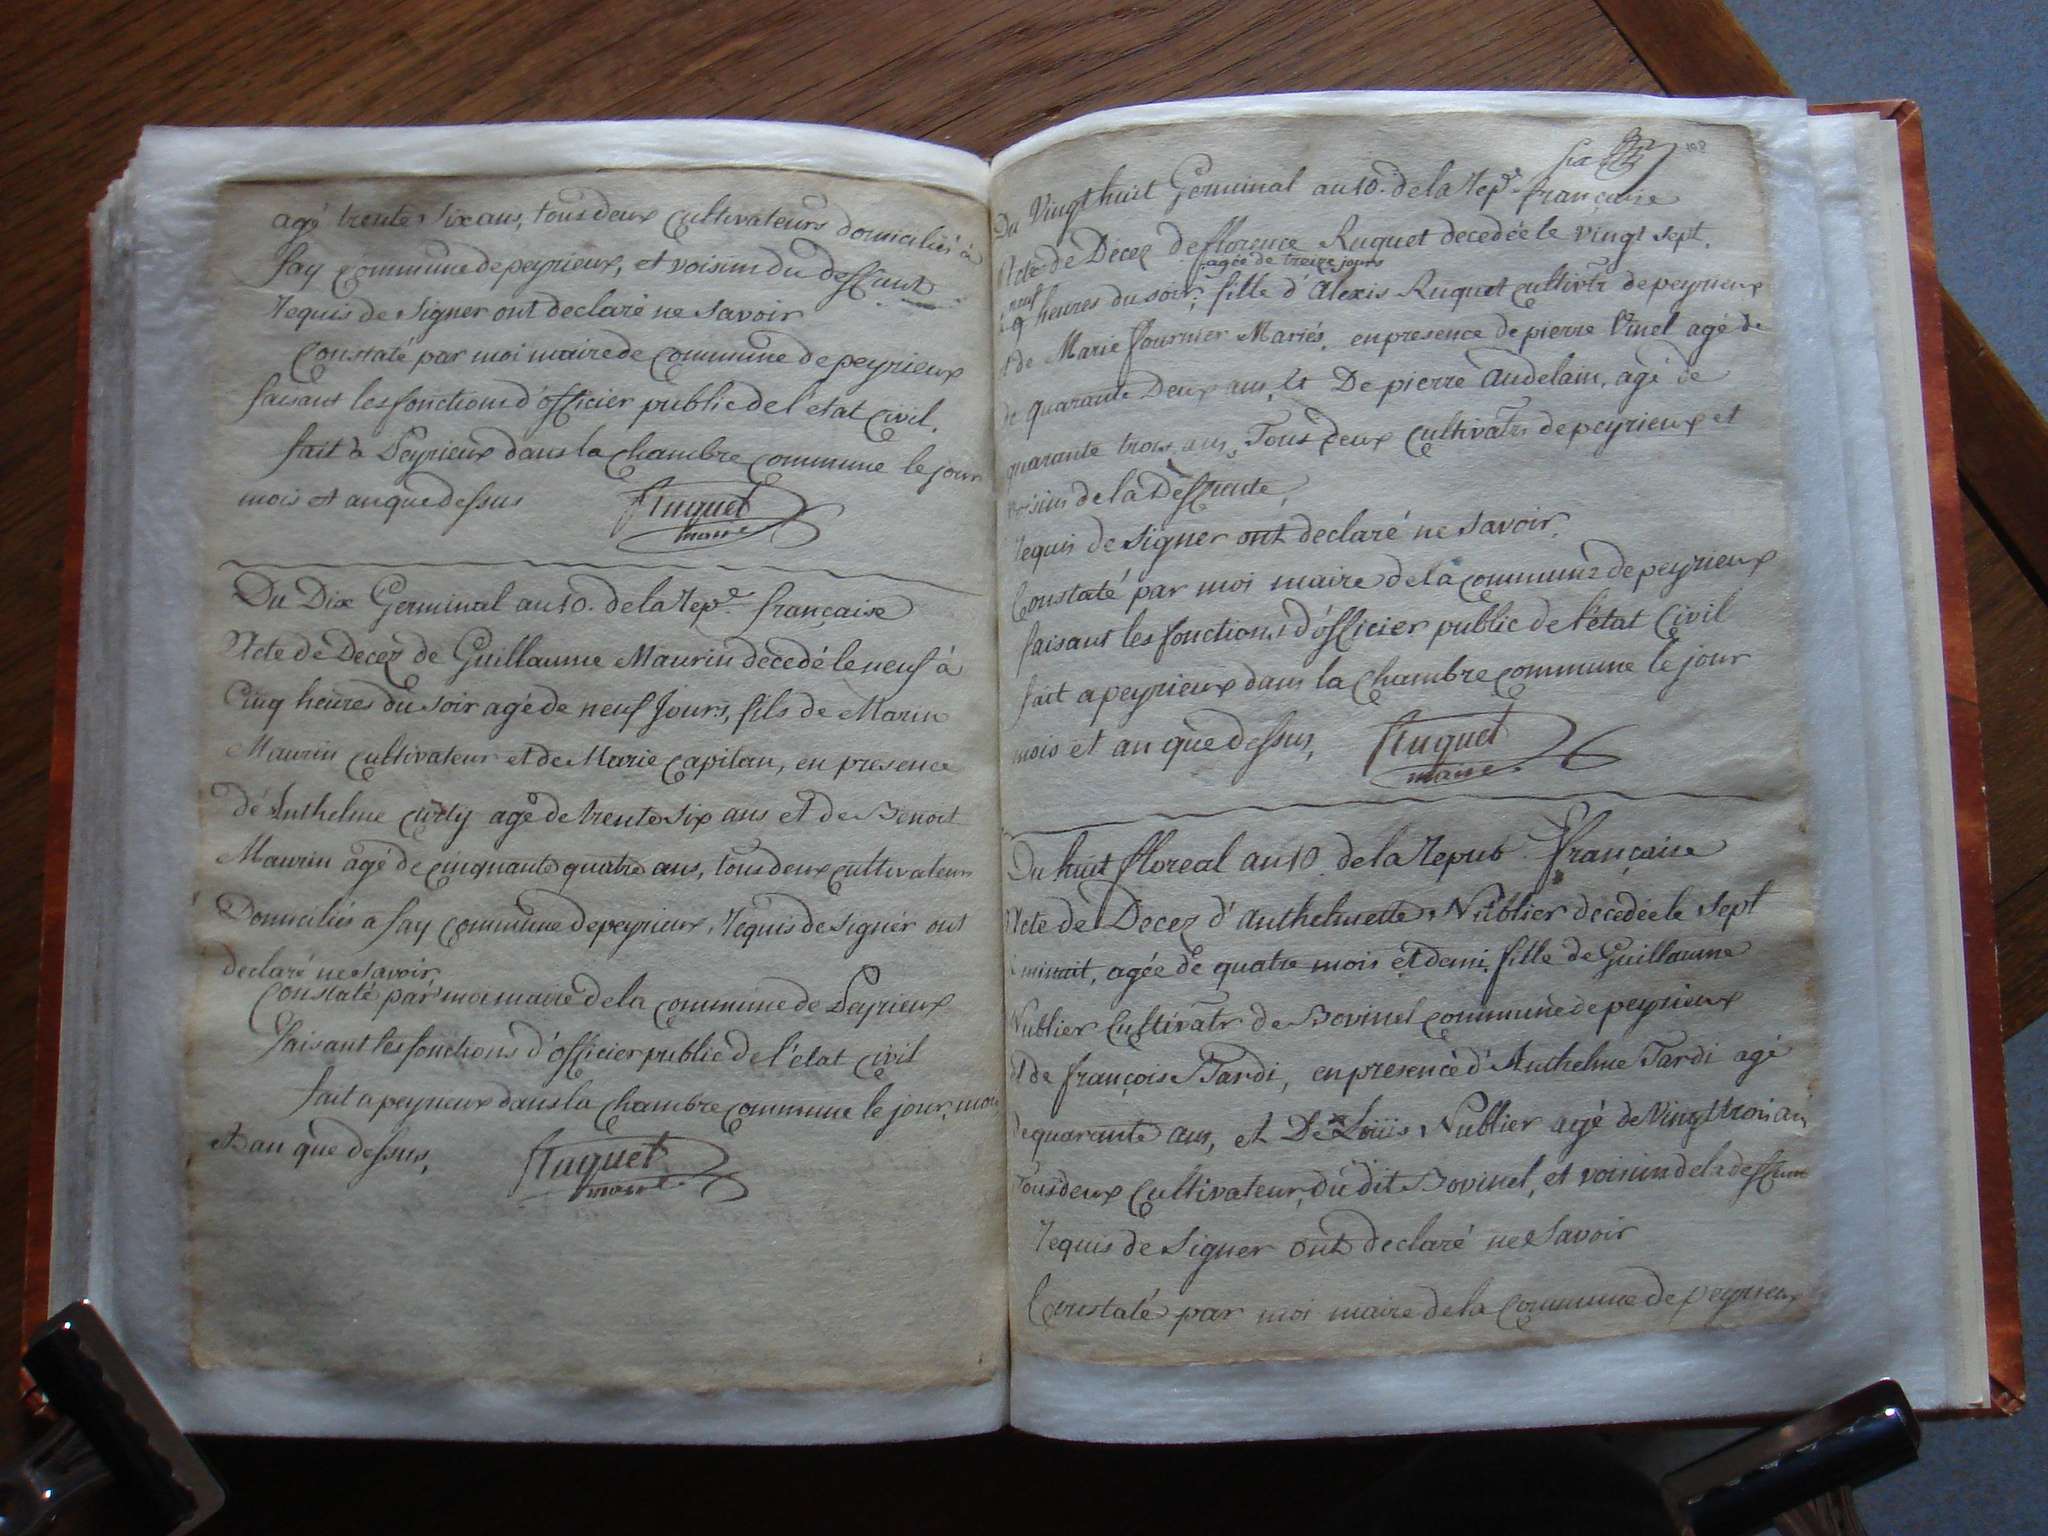 agé trente six ans, tous deux cultivateurs domiciliés à
fay commune de peyrieux, et voisins du deffunt
requis de signer ont declaré ne savoir
Constaté par moi maire de commune de peyrieux
faisant les fonctions d'officier public de l'état civil.
fait à Peyrieux dans la chambre commune le jour
mois et an que dessus
Ruquet
maire
Du Dix Germinal an 10. de la repe. française
Acte de Decez de Guillaume Maurin decedé le neuf à
Cinq heures du soir agé de neuf jours, fils de Marin
Maurin cultivateur et de Marie Capitan, en presence
d'Anthelme agé de trente six ans et de Benoit
Maurin agé de cinquante quatre ans, tous deux cultivateurs
Domiciliés a fay commune de peyrieux, requis de signer ont
declaré ne savoir
Constaté par moi maire de la commune de Peyrieux
faisant les fonctions d'officier public de l'état civil
fait a peyrieux dans la chambre commune le jour, mois
et an que dessus,
Ruquet
maire
six
108
Du Vingt huit Germinal an 10. de la repe. française
Acte de Decez de florence Ruquet decedée le vingt sept
agée de treize jours
à neuf
9 heures du soir, fille d'Alexis Ruquet cultivtr de peyrieux
et de Marie fournier Mariés, en presence de pierre Vinel agé de
de quarante Deux ans, et De pierre Andelain, agé de
quarante trois ans, Tous deux cultivatrs de peyrieux et
voisins de la Deffunte,
requis de signer ont declaré ne savoir.
Constaté par moi maire de la commune de peyrieux
faisant les fonctions d'officier public de l'état Civil
fait a peyrieux dans la chambre commune le jour
mois et an que dessus,
Ruquet
maire
Du huit floreal an 10. de la repub. française
Acte de Decez d'Anthelmette Nublier décedée le sept
à minuit, agée de quatre mois et demi, fille de Guillaume
Nublier Cultivatr de Bovinel commune de peyrieux
et de françoise Tardi, en presence d'Anthelme Tardi agé
de quarante ans, et De Louis Nublier agé de Vingt trois ans
Tous deux cultivateurs du dit Bovinel, et voisins de la deffunte
requis de signer ont declaré ne savoir
Constaté par moi maire de la commune de peyrieux